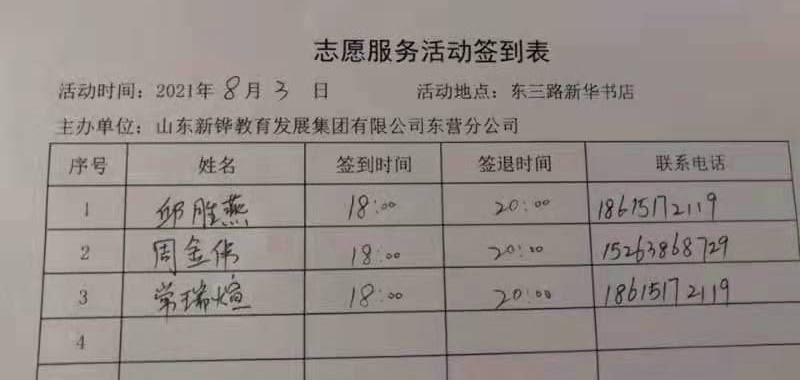 志愿服务活动签到表
活动时间：2021年 8 月 3 日 活动地点：东三路新华书店
主办单位：山东新铧教育发展集团有限公司东营分公司
序号 姓名 签到时间 签退时间 联系电话
1 邱胜燕 18:00 20:00 18615172119
2 周金伟 18:00 20:00 15263868729
3 常瑞煊 18:00 20:00 18615172119
4